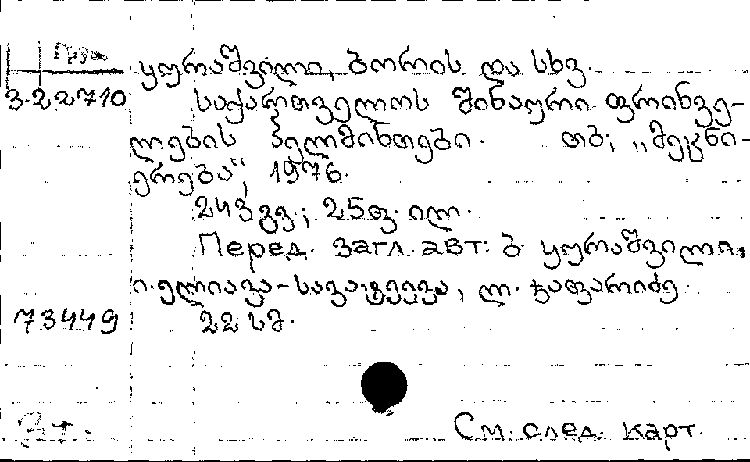 Груз
ყურაშვილი, ბორის და სხვ.
3-22710 საქართველოს შინაური ფრინვე-
ლების ჰელმინთები. თბ; „მეცნი-
ერება“, 1976.
243 გვ.; 25 ფ. ილ.
Перед. загл. авт: ბ. ყურაშვილი,
ი. ელიავა-სავატეევა, ლ. ჯაფარიძე.
73449 22 სმ.
3т.
См. след. карт.